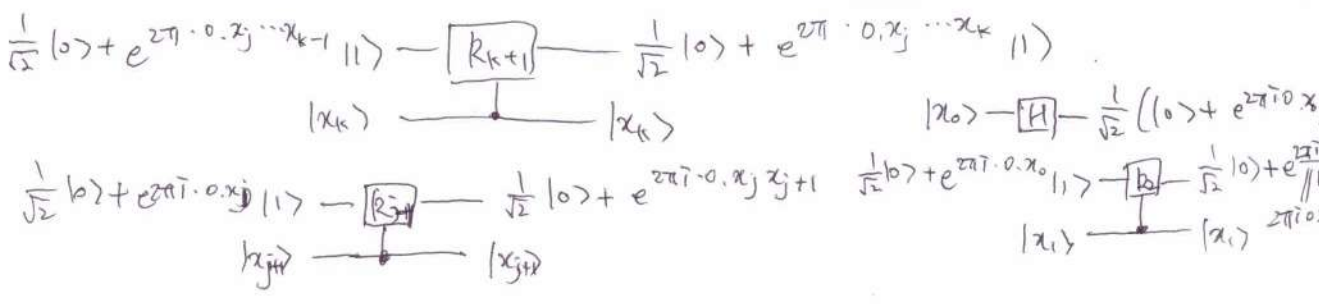 1/√2 |0> + e^{2π · 0.x_j ⋯ x_{k-1}} |1> — R_{k+1} — 1/√2 |0> + e^{2π · 0.x_j ⋯ x_k} |1>
|x_k> — |x_k>
|x_0> — H — 1/√2 (|0> + e^{2πi 0.x_0
1/√2 |0> + e^{2πi · 0.x_j} |1> — 1/√2 |0> + e^{2πi · 0.x_j x_{j+1}}
|x_{j+1}> — |x_{j+1}>
1/√2 |0> + e^{2πi · 0.x_0} |1> — 1/√2 |0> + e^{2πi
|x_1> — |x_1> 2πi 0.